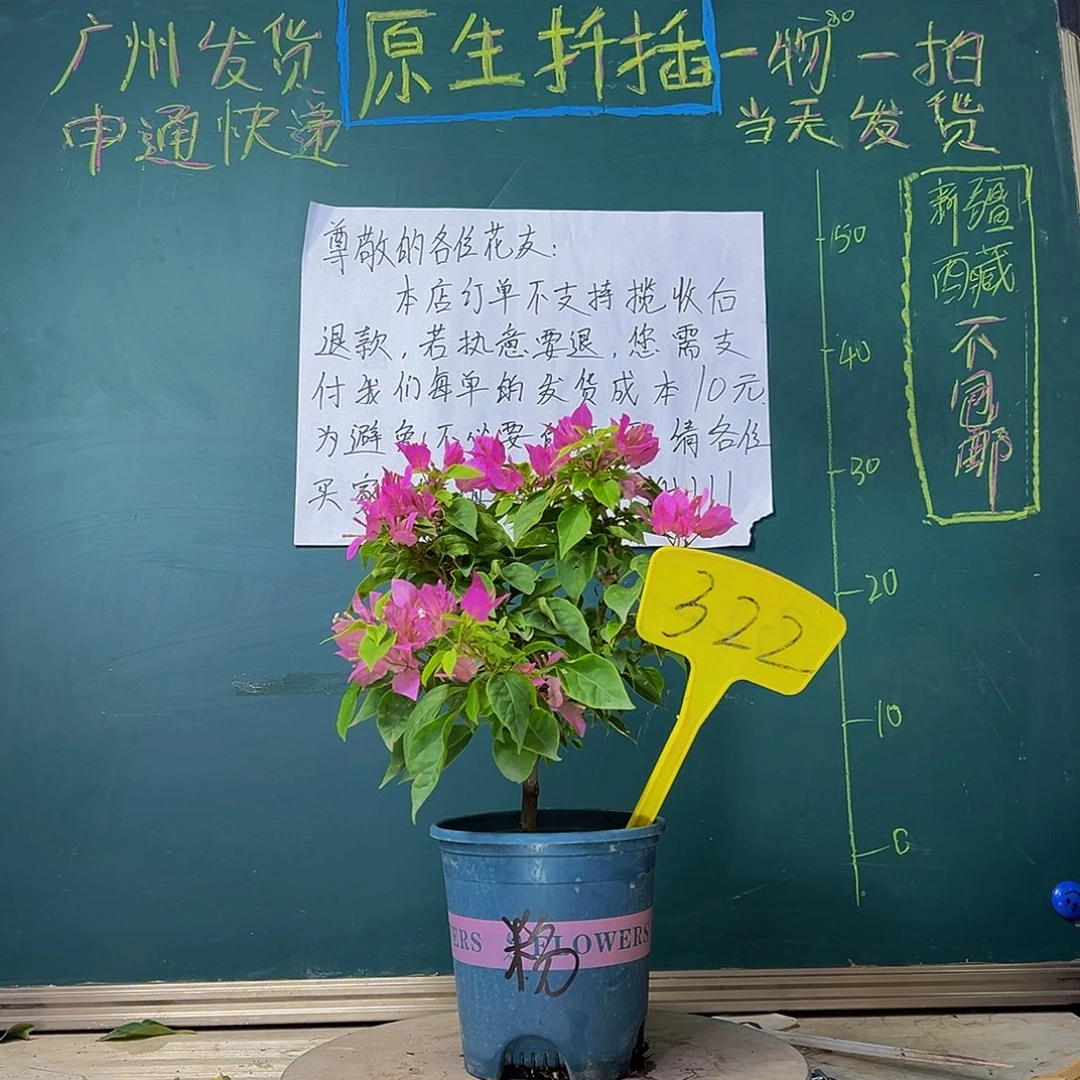 广州发货
申通快递
原生扦插
一物一拍
80
当天发货
新疆
西藏
不
包
邮
50
40
30
20
10
0
尊敬的各位花友:
本店订单不支持揽收后
退款,若执意要退,您需支
付我们每单的发货成本10元.
为避免不必要 请各位
买家 !!!!
322
ERS FLOWERS
粉